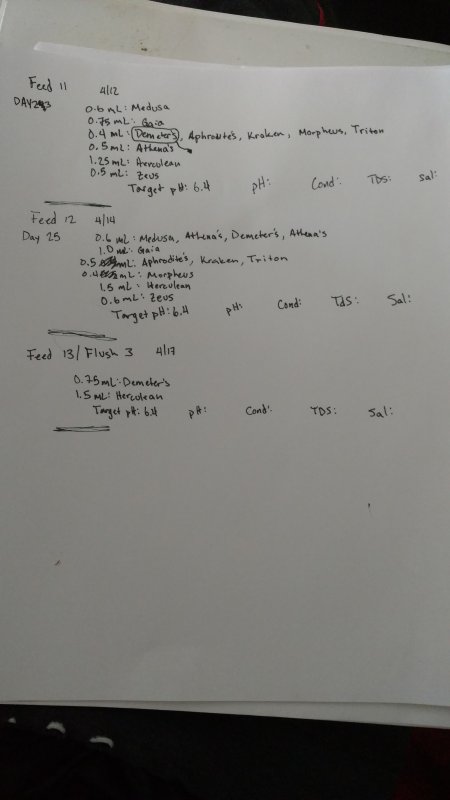 Feed 11 4/12
DAY 23
0.6 mL: Medusa
0.75 mL: Gaia
0.4 mL: Demeter's, Aphrodite's, Kraken, Morpheus, Triton
0.5 mL: Athena's
1.25 mL: Herculean
0.5 mL: Zeus
Target pH: 6.4 pH: Cond: TDS: Sal:
Feed 12 4/14
Day 25 0.6 mL: Medusa, Athena's, Demeter's, Athena's
1.0 mL: Gaia
0.5 mL: Aphrodite's, Kraken, Triton
0.4 mL: Morpheus
1.5 mL: Herculean
0.6 mL: Zeus
Target pH: 6.4 pH: Cond: TdS: Sal:
Feed 13/Flush 3 4/17
0.75 mL: Demeter's
1.5 mL: Herculean
Target pH: 6.4 pH: Cond: TDS: Sal: